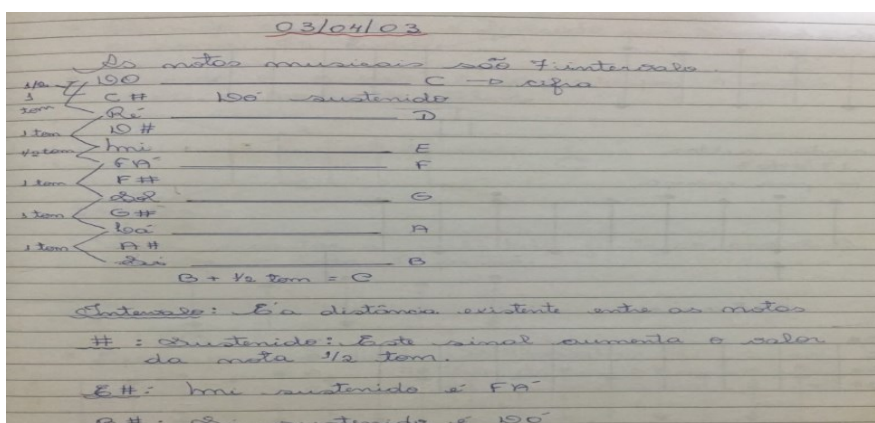 03/04/03
As notas musicais são 7 intervalo.
1/2 DO C → cifra
1 tom C# DO sustenido
Ré D
1 tom D#
1/2 tom mi E
FA F
1 tom F#
Sol G
1 tom G#
Lá A
1 tom A#
Si B
B + 1/2 tom = C
Intervalo: É a distância existente entre as notas
# : Sustenido: Este sinal aumenta o valor
da nota 1/2 tom.
E#: mi sustenido é FA
B#: Si sustenido é DO